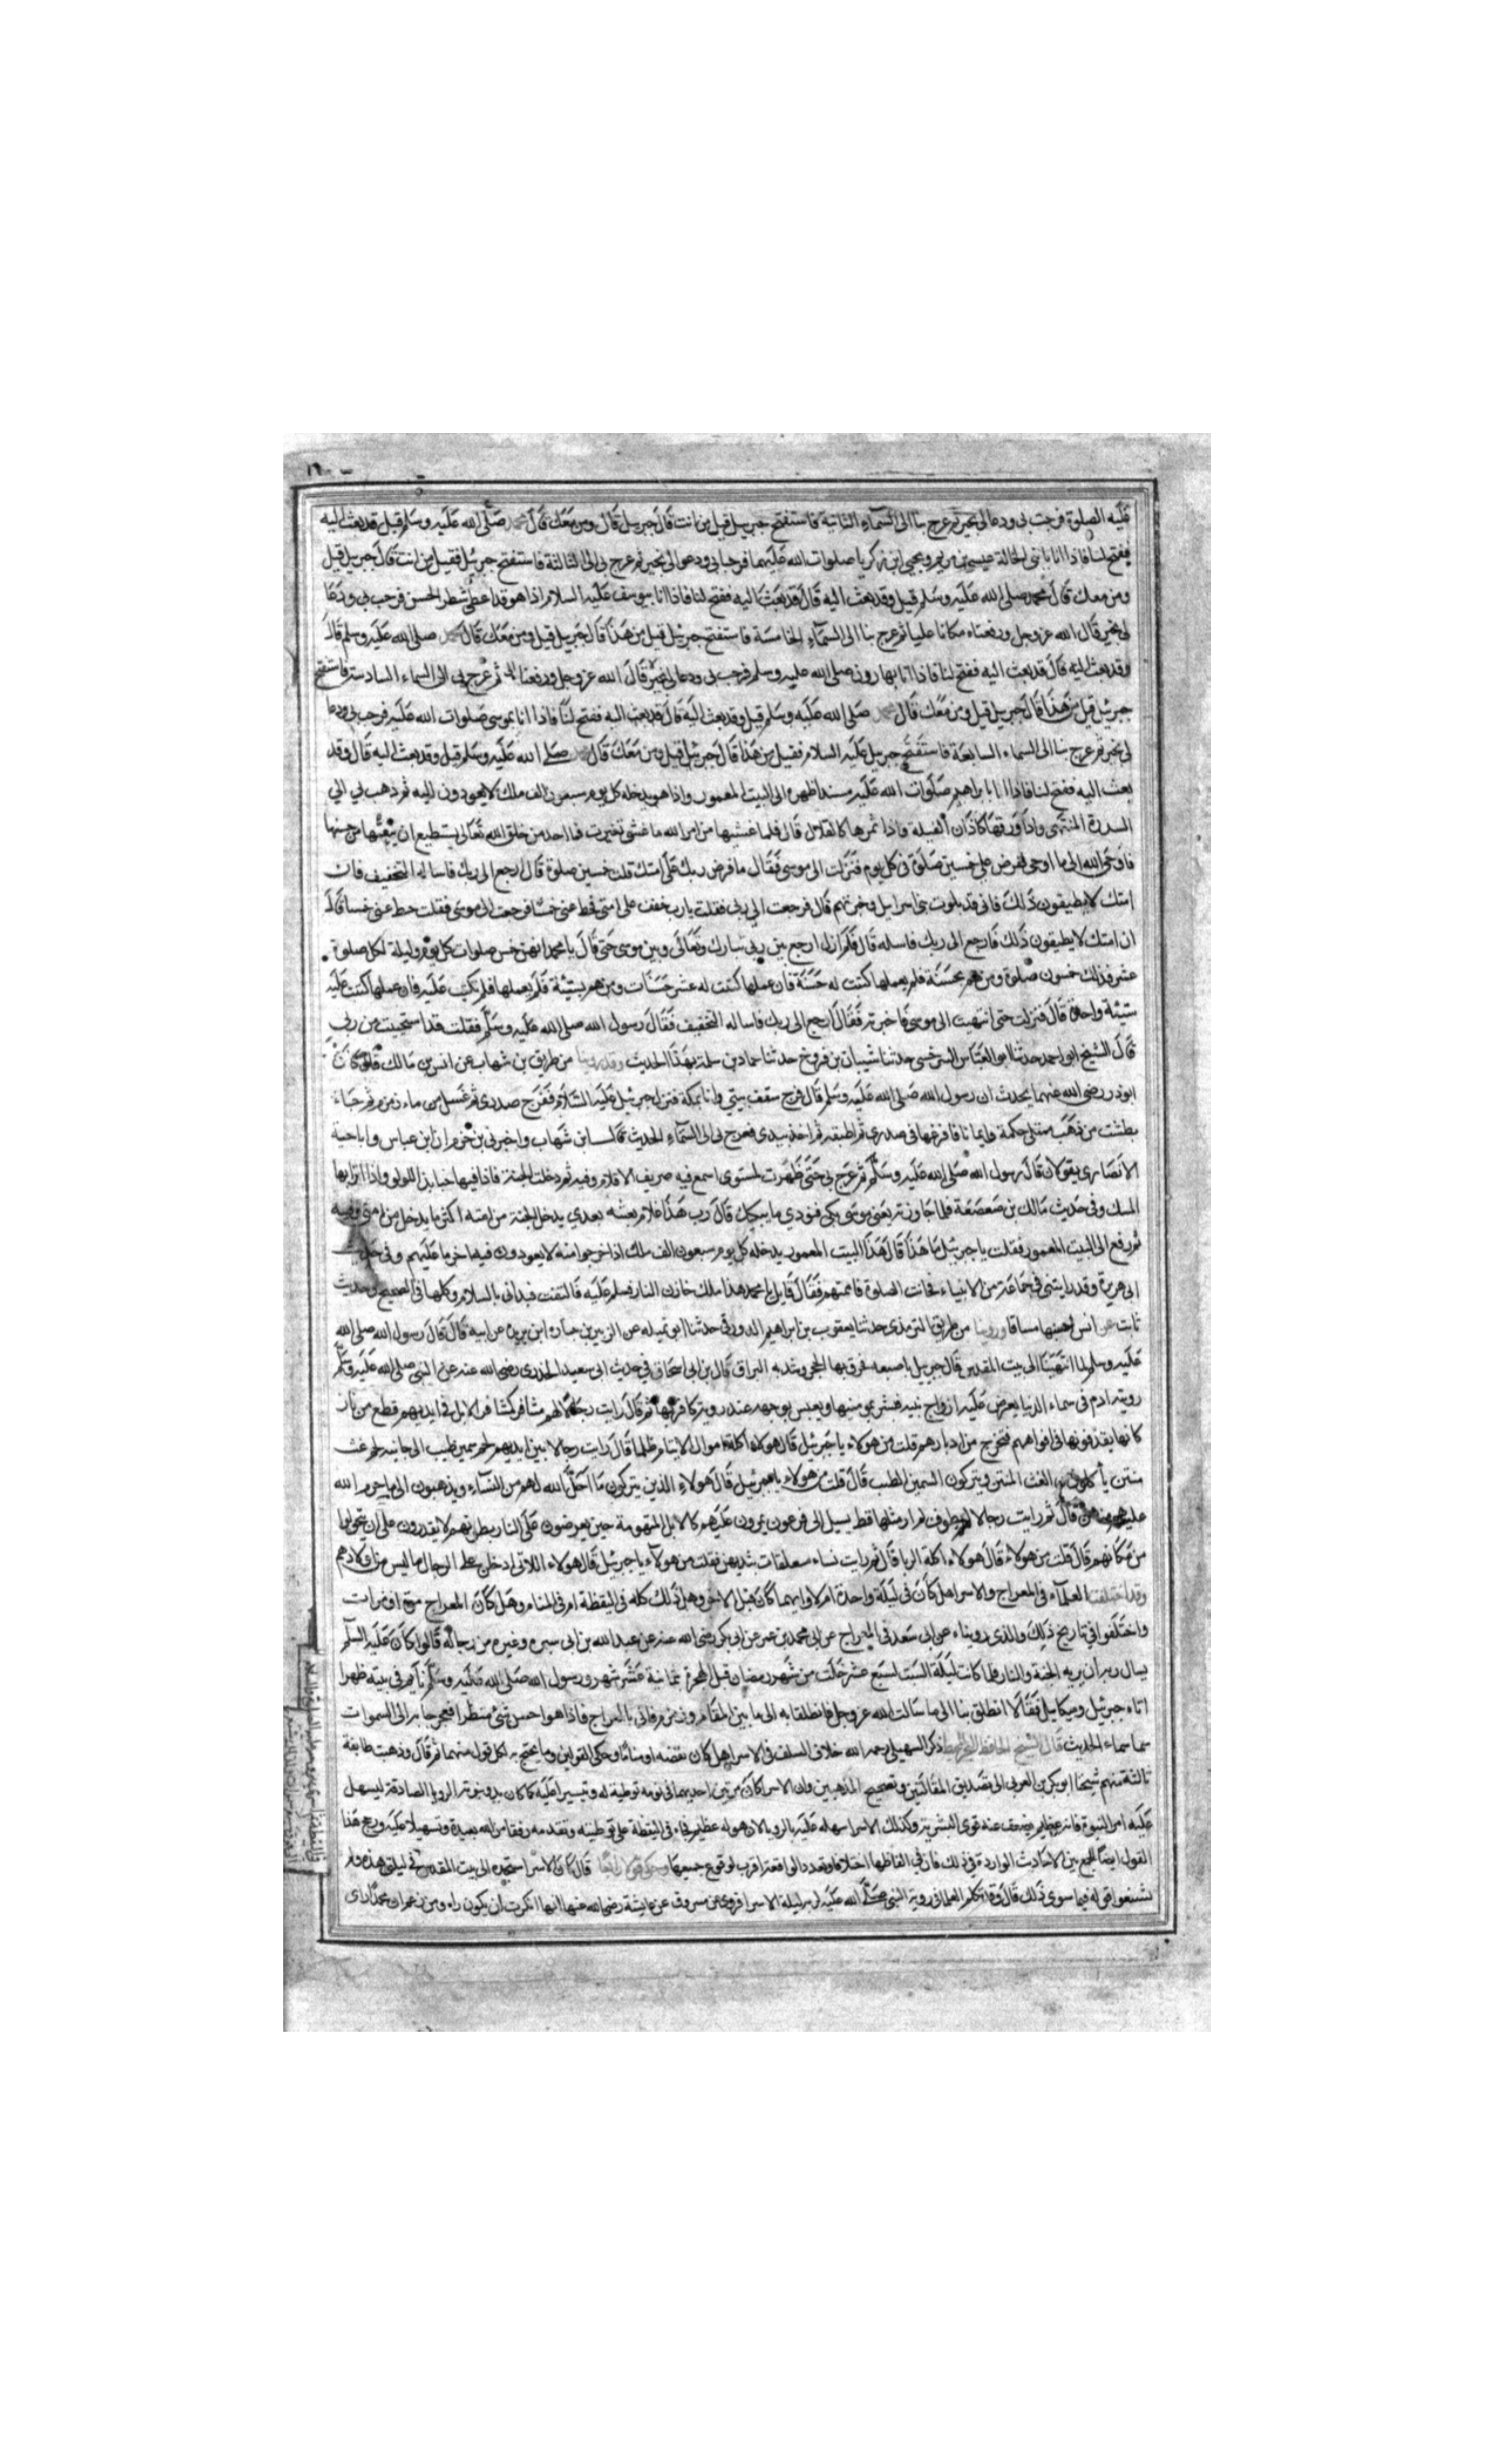 عليه الصلوة فرحب بي ودعا لي بخير ثم عرج بنا الى السماء الثانية فاستفتح جبريل قيل من انت قال جبريل قال ومن معك قال محمد صلى الله عليه وسلم قيل وقد بعث اليه
ففتح لنا فاذا انا بابني الخالة عيسى بن مريم ويحيى ابن زكريا صلوات الله عليهما فرحبا بي ودعوا لي بخير ثم عرج بي الى الثالثة فاستفتح جبرئيل فقيل من انت قال جبريل قيل
ومن معك قال محمد صلى الله عليه وسلم قيل وقد بعث اليه قال قد بعث اليه ففتح لنا فاذا انا بيوسف عليه السلام اذا هو قد اعطي شطر الحسن فرحب بي ودعا
لي بخير قال الله عز وجل ورفعناه مكانا عليا ثم عرج بنا الى السماء الخامسة فاستفتح جبرئيل قيل من هذا قال جبريل قيل ومن معك قال محمد صلى الله عليه وسلم قال
وقد بعث اليه قال قد بعث اليه ففتح لنا فاذا انا بهارون صلى الله عليه وسلم فرحب بي ودعا لي بخير قال الله عز وجل ورفعنا ثم عرج بي الى السماء السادسة فاستفتح
جبرئيل قيل من هذا قال جبريل قيل ومن معك قال محمد صلى الله عليه وسلم قيل وقد بعث اليه قال قد بعث اليه ففتح لنا فاذا انا بموسى صلوات الله عليه فرحب بي ودعا
لي بخير ثم عرج بنا الى السماء السابعة فاستفتح جبريل عليه السلام فقيل من هذا قال جبرئيل قيل ومن معك قال محمد صلى الله عليه وسلم قيل وقد بعث اليه قال وقد
بعث اليه ففتح لنا فاذا انا بابراهيم صلوات الله عليه مسندا ظهره الى البيت المعمور واذا هو يدخله كل يوم سبعون الف ملك لا يعودون اليه ثم ذهب بي الى
السدرة المنتهى واذا ورقها كاذان الفيلة واذا ثمرها كالقلال قال فلما غشيها من امر الله ما غشى تغيرت فما احد من خلق الله تعالى يستطيع ان ينعتها من حسنها
فاوحى الله الى ما اوحى ففرض علي خمسين صلوة في كل يوم فنزلت الى موسى فقال ما فرض ربك على امتك قلت خمسين صلوة قال ارجع الى ربك فاساله التخفيف فان
امتك لا يطيقون ذلك فاني قد بلوت بني اسرايل وخبرتهم قال فرجعت الى ربي فقلت يا رب خفف على امتي فحط عني خمسا فرجعت الى موسى فقلت حط عني خمسا قال
ان امتك لا يطيقون ذلك فارجع الى ربك فاسله قال فلم ازل ارجع بين ربي تبارك وتعالى وبين موسى حتى قال يا محمد انهن خمس صلوات كل يوم وليلة لكل صلوة
عشر فذلك خمسون صلوة ومن هم بحسنة فلم يعملها كتبت له حسنة فان عملها كتبت له عشر حسنات ومن هم بسيئة فلم يعملها فلم تكتب عليه فان عملها كتبت عليه
سيئة واحدة قال فنزلت حتى انتهيت الى موسى فاخبرته فقال ارجع الى ربك فاساله التخفيف فقال رسول الله صلى الله عليه وسلم فقلت قد استحييت من ربي
قال الشيخ ابو احمد حدثنا ابو العباس السرخسي حدثنا شيبان بن فروخ حدثنا حماد بن سلمة بهذا الحديث وقد روينا من طريق بن شهاب عن انس بن مالك قال كان
ابو ذر رضي الله عنهما يحدث ان رسول الله صلى الله عليه وسلم قال فرج سقف بيتي وانا بمكة فنزل جبرئيل عليه السلام ففرج صدري ثم غسل من ماء زمزم ثم جاء
بطست من ذهب ممتلي حكمة وايمانا فافرغها في صدري ثم اطبقه ثم اخذ بيدي فعرج بي الى السماء الحديث قال ابن شهاب واخبرني بن حزم ان ابن عباس وابا حبة
الانصاري يقولان قال رسول الله صلى الله عليه وسلم ثم عرج بي حتى ظهرت لمستوى اسمع فيه صريف الاقلام وفيه ثم دخلت الجنة فاذا فيها جنابذ اللولو واذا ترابها
المسك وفي حديث مالك بن صعصعة فلما جاوزته يعني موسى بكى فنودي ما يبكيك قال رب هذا غلام بعثته بعدي يدخل الجنة من امته اكثر ما يدخل من امتي وفيه
ثم رفع الى البيت المعمور فقلت يا جبرئيل ما هذا قال هذا البيت المعمور يدخله كل يوم سبعون الف ملك اذا خرجوا منه لا يعودون فيه اخر ما عليهم وفي حديث
ابي هريرة وقد رايتني في جماعة من الانبياء فحانت الصلوة فاممتهم فقال قايل يا محمد هذا ملك خازن النار فسلم عليه فالتفت فبداني بالسلام وكلها في الصحيح وحديث
ثابت عن انس احسنها مساقا وروينا من طريق الترمذي حدثنا يعقوب بن ابراهيم الدورقي حدثنا ابو تميله عن الزبير بن جناده ابن بريده عن ابيه قال قال رسول الله صلى الله
عليه وسلم لما انتهينا الى بيت المقدس قال جبريل باصبعه فخرق بها الحجر وشد به البراق قال بن ابي اسحاق في حديث ابي سعيد الخدري رضي الله عنه عن النبي صلى الله عليه وسلم
رويته ادم في سماء الدنيا يعرض عليه ارواح بنيه فيسر بمومنيها ويعبس بوجهه عند روية كافرها ثم قال رايت رجالا لهم مشافر كمشافر الابل في ايديهم قطع من نار
كانها يقذفونها في افواههم فتخرج من ادبارهم قلت من هولاء يا جبرئيل قال هولاء اكلة اموال الايتام ظلما قال رايت رجالا بين ايديهم لحم سمين طيب الى جانبه لحم غث
منتن ياكلون من الغث المنتن ويتركون السمين الطيب قال قلت من هولاء يا جبرئيل قال هولاء الذين يتركون ما احل الله لهم من النساء ويذهبون الى ما حرم الله
عليهم منهن قال ثم رايت رجالا لهم بطون لم ار مثلها قط بسبيل ال فرعون يمرون عليهم كالابل المهيومة حين يعرضون على النار يطونهم لا يقدرون على ان يتحولوا
من مكانهم قال قلت من هولاء قال هولاء اكلة الربا قال ثم رايت نساء معلقات بثديهن فقلت من هولاء يا جبرئيل قال هولاء اللاتي ادخلن على الرجال ما ليس من اولادهم
وقد اختلفت العلماء في المعراج والاسراء هل كان في ليلة واحدة ام لا وايهما كان قبل الاخر وهل ذلك كله في اليقظة ام في المنام وهل كان المعراج مرة او مرات
واختلفوا في تاريخ ذلك والذي رويناه عن ابي سعد في المعراج عن ابي محمد بن عمر عن ابي بكر رضي الله عنه عن عبد الله بن ابي سبره وغيره من رجاله قالوا كان عليه السلم
يسال ربه ان يريه الجنة والنار فلما كانت ليلة السبت لسبع عشر خلت من شهر رمضان قبل الهجرة بثمانية عشر شهر ورسول الله صلى الله عليه وسلم نايم في بيته ظهرا
اتاه جبرئيل وميكايل فقالا انطلق بنا الى ما سالت الله عز وجل فانطلقا به الى ما بين المقام وزمزم فاتي بالمعراج فاذا هو احسن شيء منظرا فعرجا به الى السموات
سماء سماء الحديث قال الشيخ الحافظ ذكر السهيلي رحمه الله خلاف السلف في الاسراء هل كان يقضه او مناما وحكى القولين وما يحتج به لكل قول منهما ثم قال وذهبت طايفة
ثالثة منهم شيخنا ابو بكر بن العربي الى تصديق المقالتين وتصحيح المذهبين وان الاسرا كان مرتين احديهما في نومه توطية له وتيسيرا عليه كما كان بدو نبوته الرويا الصادقة ليسهل
عليه امر النبوة فانه عظيم يضعف عنه قوى البشرية وكذلك الاسرا سهله عليه بالرويا لان هوله عظيم فجاء في اليقظة على توطينه وتقدمه رفقا من الله بعبده وتسهيلا عليه ورجح هذا
القول ايضا للجمع بين الاحاديث الواردة في ذلك فان في الفاظها اختلافا وتعدد الواقعة اقرب لوقوع جميعها وحكى قولا رابعا قال كان الاسرا بجسده الى بيت المقدس في ليلتي هذه ولم
يشنعوا قوله فيما سوى ذلك قال وقد تكلم العلماء في روية النبي صلى الله عليه لربه ليلة الاسرا فروي عن مسروق عن عايشة رضي الله عنها انها انكرت ان يكون راه ومن زعم ان محمدا راى